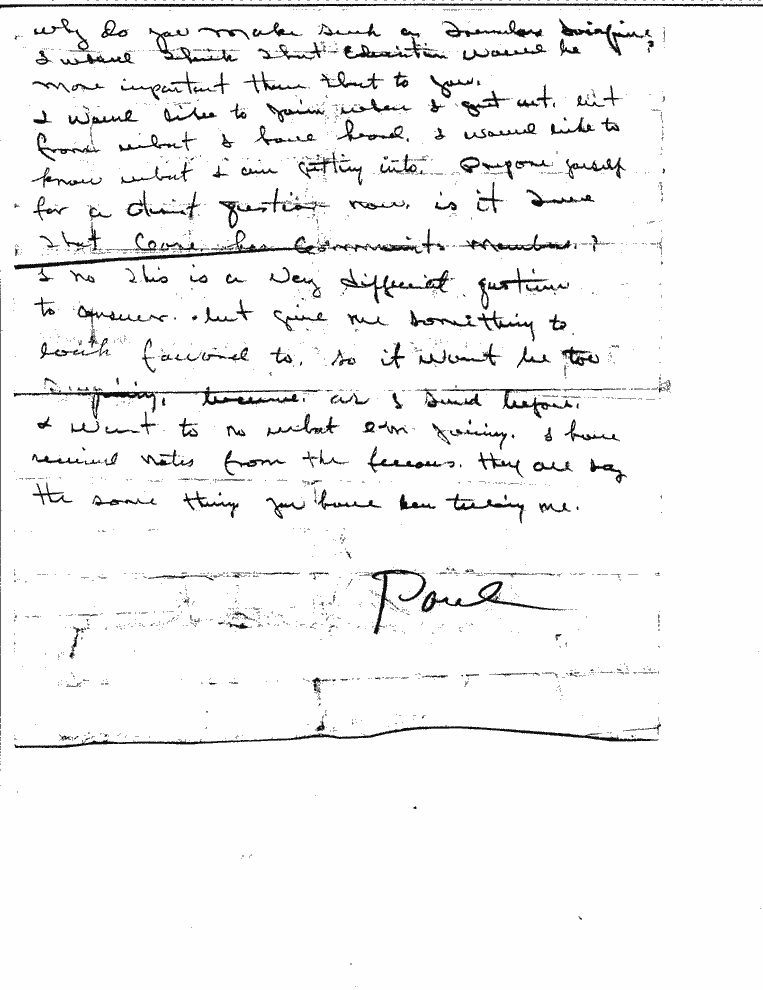 why do you make such a
I would think that Education would be
more important then that to you.
I would like to join when I get out, but
from what I have heard. I would like to
know what I am getting into. Prepare yourself
for a question now, is it true
that Core has Communits members.?
I no this is a very question
to answer. but give me something to
look foward to. so it wont be too
because. as I said before.
I want to no what em joining. I have
recived notes from the they all say
the same thing you have ben me.
Paul